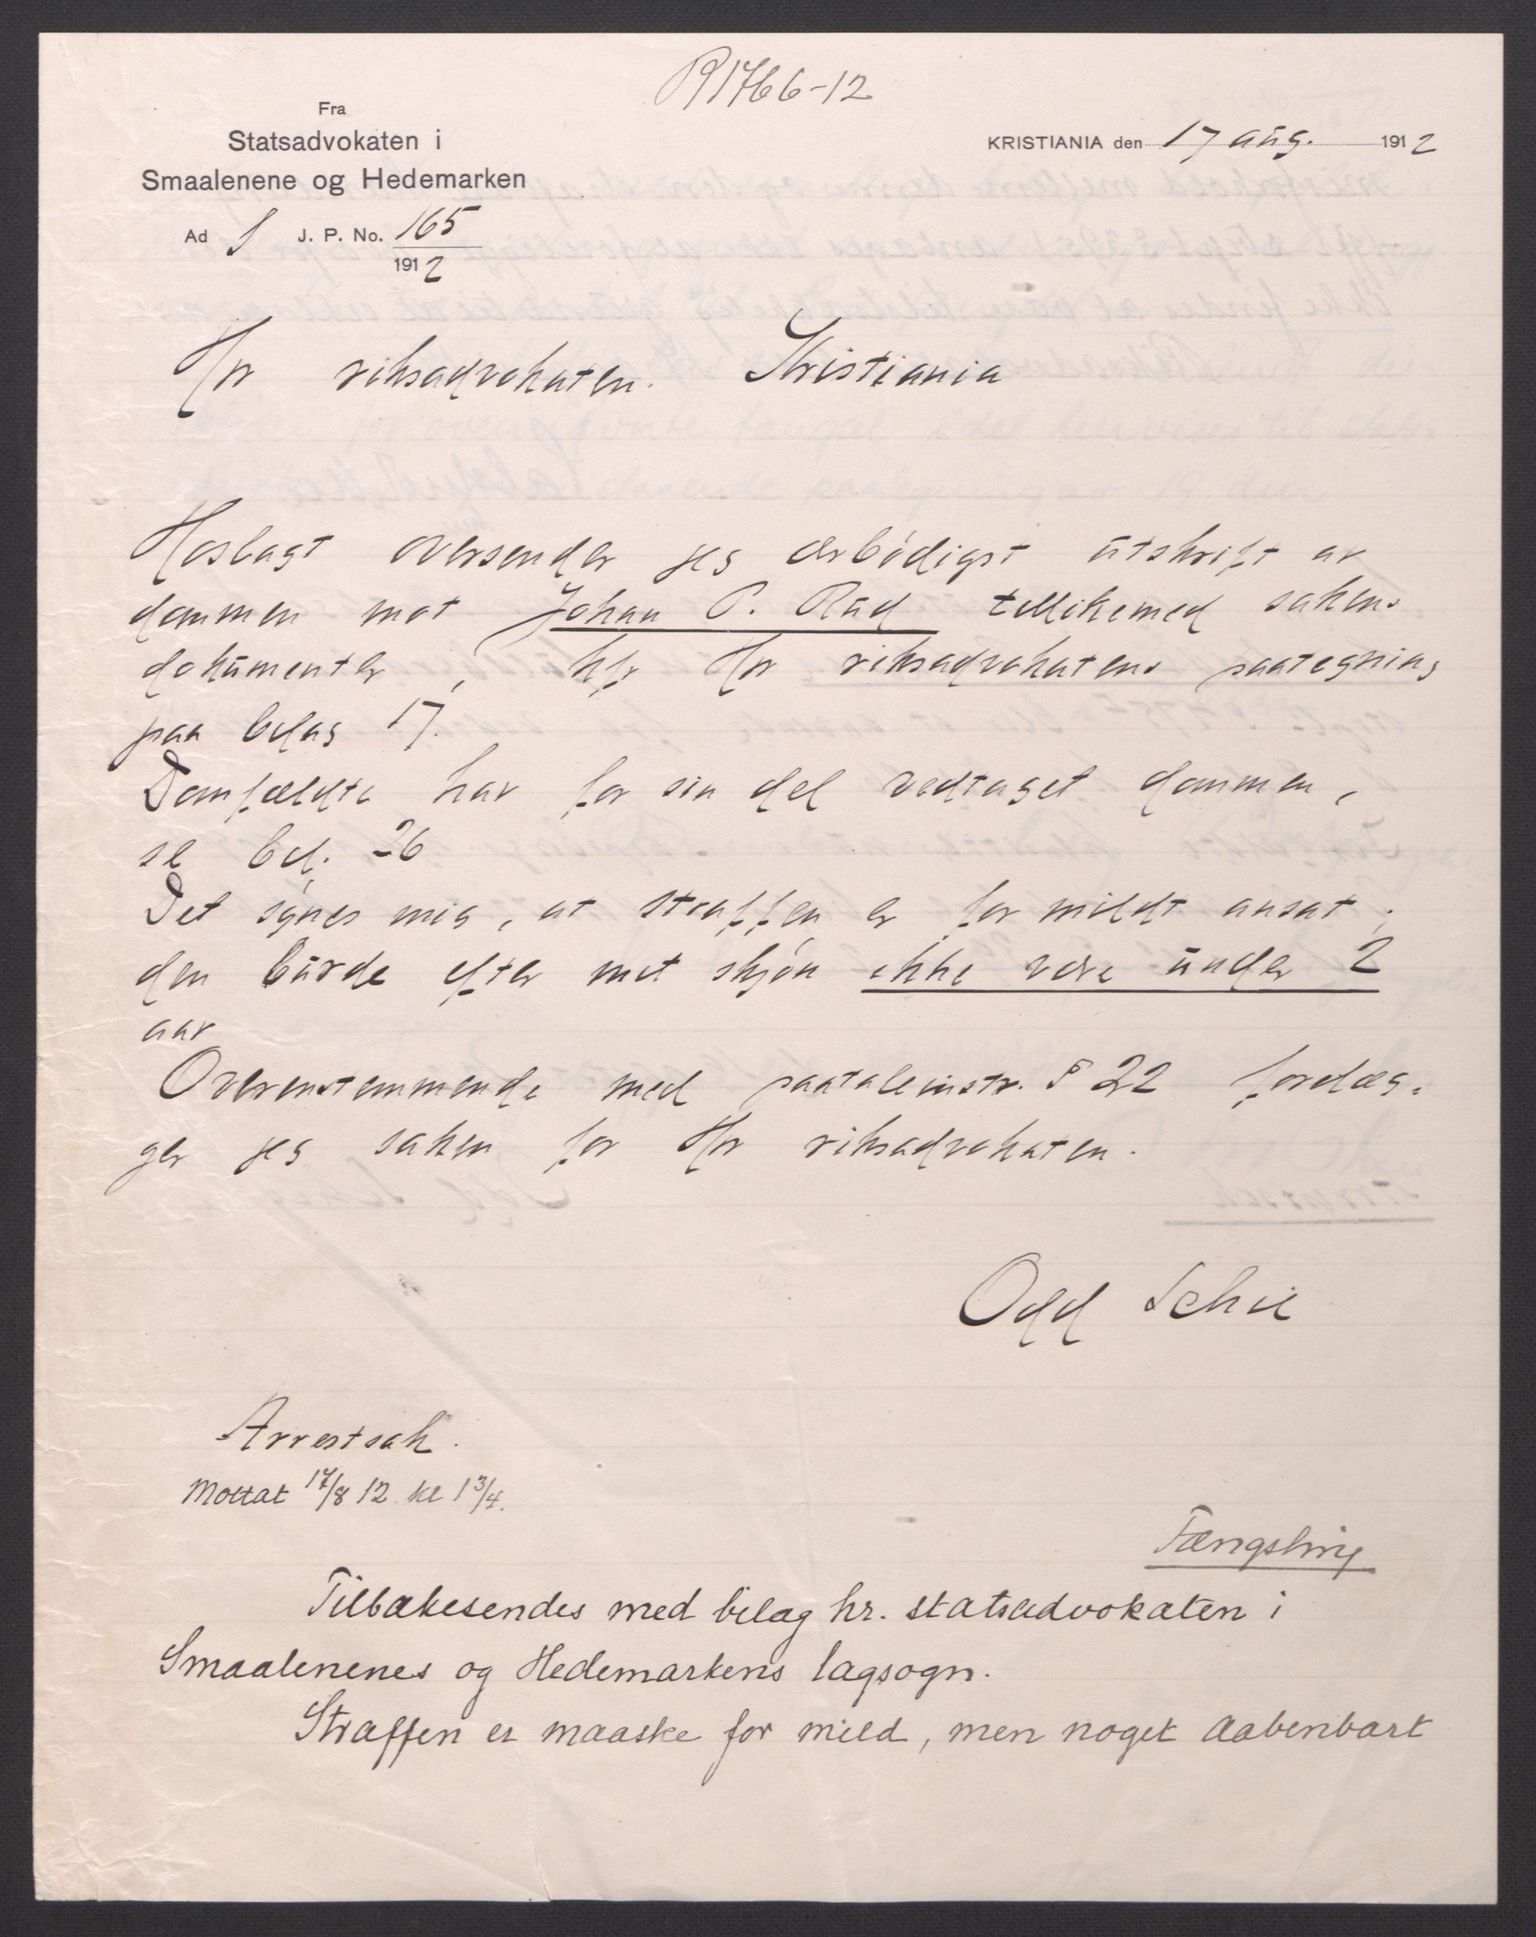 R 1766-12
Fra
Statsadvokaten i
Smaalenene og Hedemarken
KRISTIANIA den 17 aug. 1912
Ad S J. P. No. 165
1912
Hr riksadvokaten. Kristiania
Hoslagt oversender jeg ærbødigst utskrift av
dommen mot Johan P. Rud tillikemed sakens
dokumenter, kfr Hr riksadvokatens paategning
paa bilag 17.
Domfældte har for sin del vedtaget dommen,
se bil. 26
Det synes mig, at straffen er for mildt ansat;
den burde efter mit skjøn ikke være under 2
aar
Overenstemmende med paataleinstr. § 22 forelæg-
ger jeg saken for Hr riksadvokaten.
Odd Schie
Arrestsak.
Mottat 17/8 12 kl 1 3/4.
Fængsling
Tilbakesendes med bilag hr. statsadvokaten i
Smaalenenes og Hedemarkens lagsogn.
Straffen er maaske for mild, men noget aabenbart